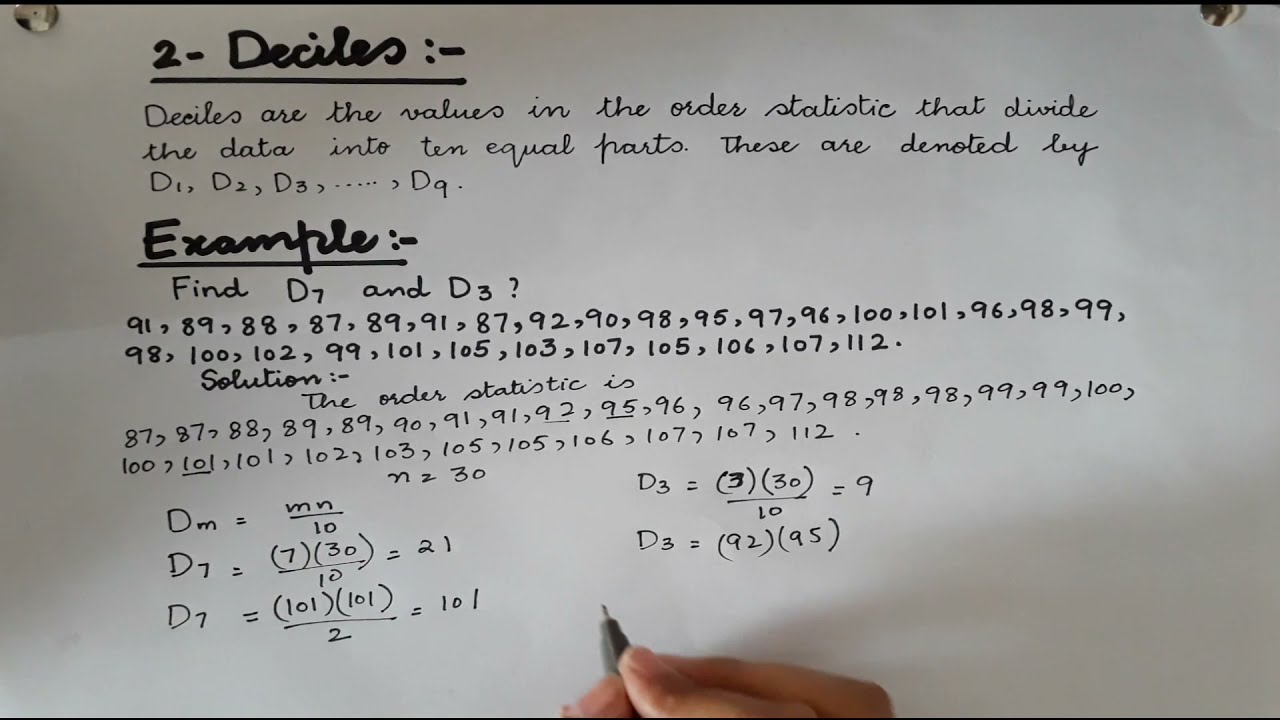 2- Deciles :-
Deciles are the values in the order statistic that divide
the data into ten equal parts. These are denoted by
D1, D2, D3, ....., D9.
Example:-
Find D7 and D3?
91, 89, 88, 87, 89, 91, 87, 92, 90, 98, 95, 97, 96, 100, 101, 96, 98, 99,
98, 100, 102, 99, 101, 105, 103, 107, 105, 106, 107, 112.
Solution:-
The order statistic is
87, 87, 88, 89, 89, 90, 91, 91, 92, 95, 96, 96, 97, 98, 98, 98, 99, 99, 100,
100, 101, 101, 102, 103, 105, 105, 106, 107, 107, 112.
n = 30
Dm = mn/10
D7 = (7)(30)/10 = 21
D7 = (101)(101)/2 = 101
D3 = (3)(30)/10 = 9
D3 = (92)(95)